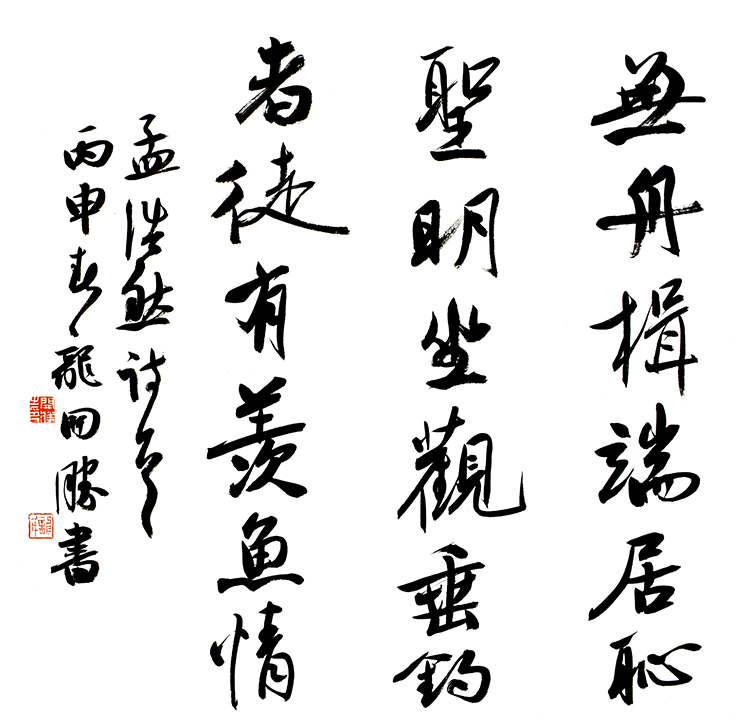 無舟楫端居恥
聖明坐觀垂釣
者徒有羨魚情
孟浩然诗
丙申春龍開勝書